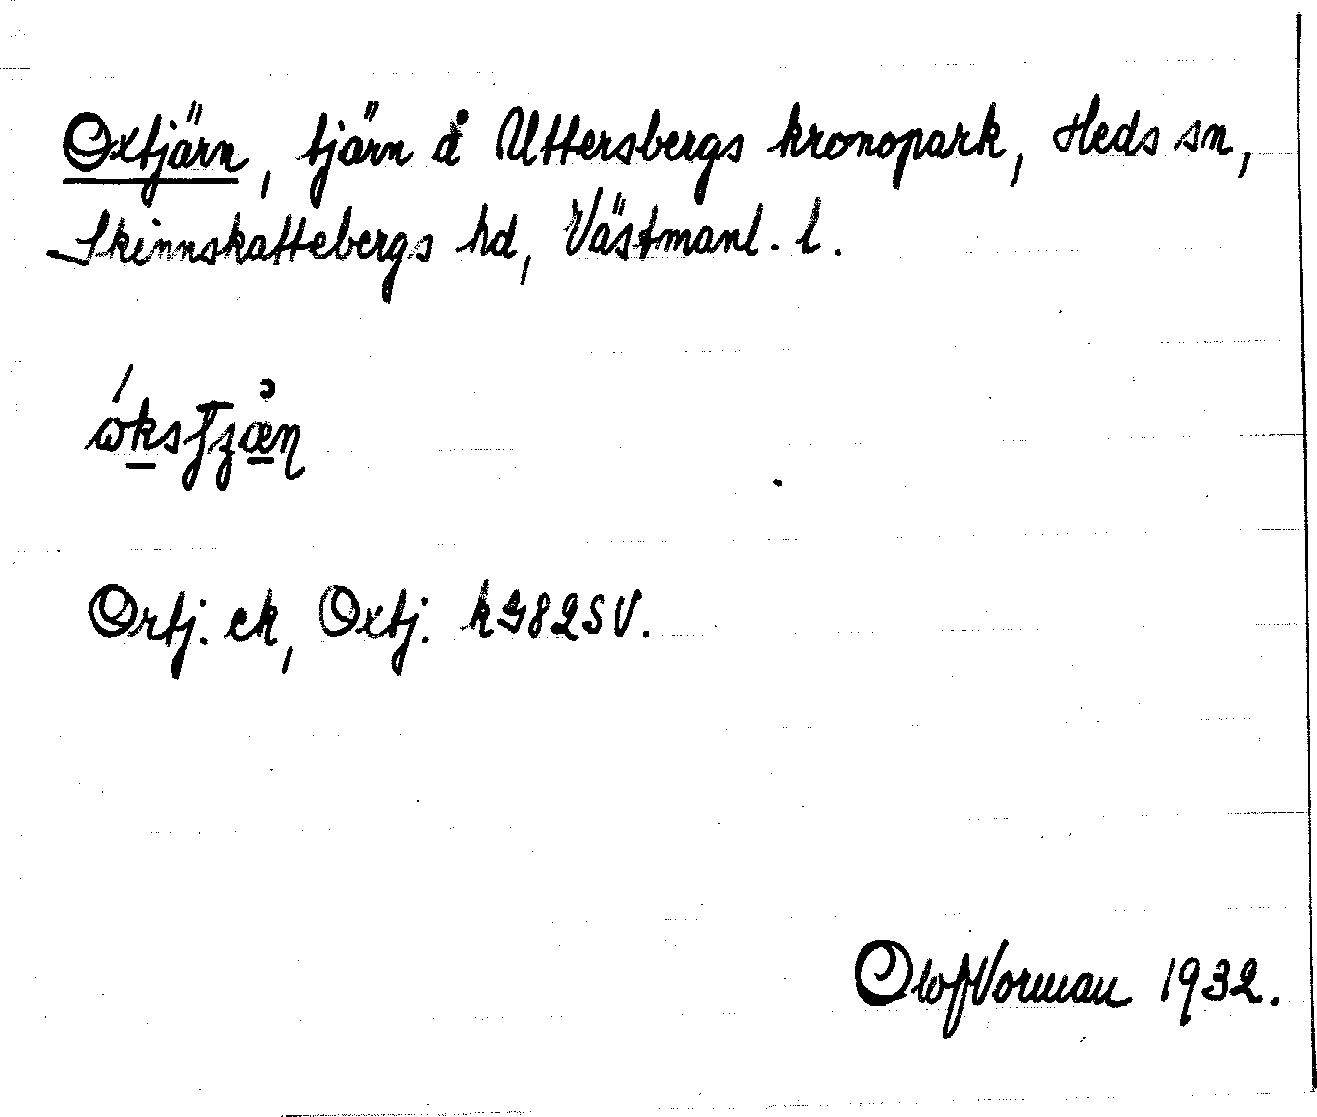 Oxtjärn, tjärn å Uttersbergs kronopark, Heds sn,
Skinnskattebergs hd, Västmanl. l.
Ortj. ek, Oxtj. k G82SV.
Olof Norman 1932.